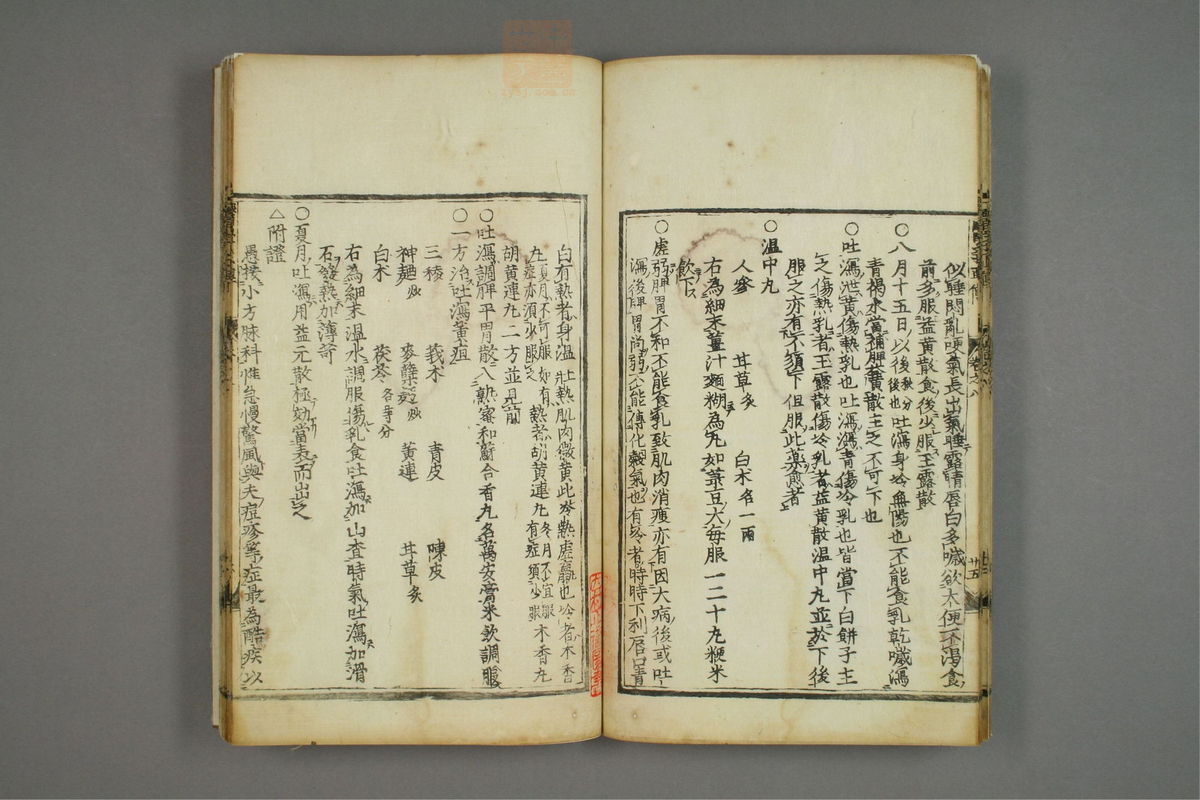 似睡悶亂哽氣長出氣睡露睛唇白多噦欲大便不渴食
前多服益黃散食後少服玉露散
○八月十五日以後秋分後也吐瀉身冷無陽也不能食乳乾噦瀉
青褐水當補脾益黃散主之不可下也
○吐瀉泄黃傷熱乳也吐瀉瀉青傷冷乳也皆當下白餅子主
之傷熱乳者玉露散傷冷乳者益黃散溫中丸並於下後
服之亦有不須下但服此藥愈者
○溫中丸
人參 甘草炙 白朮各一兩
右為細末薑汁麵糊為丸如菉豆大每服一二十丸粳米
飲下
○虛弱脾胃不和不能食乳致肌肉消瘦亦有因大病後或吐
瀉後脾胃尚弱不能傳化穀氣也有冷者時時下利唇口青
白有熱者身溫壯熱肌肉微黃此冷熱虛羸也冷者木香
丸夏月不可服如有症亦須少服之熱者胡黃連丸冬月不宜服有症須少服木香丸
胡黃連丸二方並見前
○吐瀉調脾平胃散入熟蜜和蘇合香丸名萬安膏米飲調服
○一方治吐瀉黃疸
三稜 莪朮 青皮 陳皮
神麯炒 麥櫱炒 黃連 甘草炙
白朮 茯苓各等分
右為細末溫水調服傷乳食吐瀉加山査時氣吐瀉加滑
石發熱加薄苛
○夏月吐瀉用益元散極効當表而出之
△附證
愚按小方脉科惟急慢驚風與夫痘疹等症最為酷疾以
卷之八
廿五